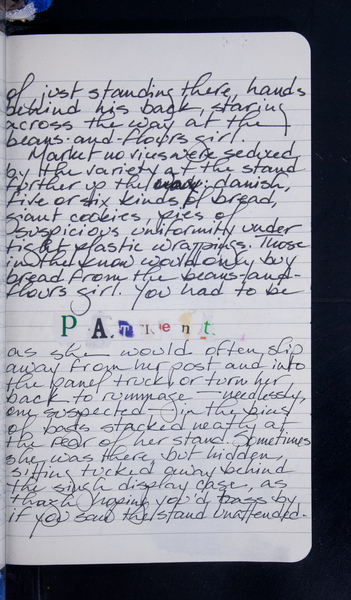 of just standing there, hands
behind his back, staring
across the way at the
beans-and-flours girl.
Market novices were seduced
by the variety at the stand
further up the way: danish,
five or six kinds of bread,
giant cookies, pies of
suspicious uniformity under
tight plastic wrappings. Those
in the know would only buy
bread from the beans-and-
flours girl. You had to be
PATIENT
as she would often slip
away from her post and into
the panel truck or turn her
back to rummage - needlessly,
one suspected - in the bins
of bads stacked neatly at
the rear of her stand. Sometimes
she was there, but hidden,
sitting tucked away behind
the single display case, as
though hoping you'd pass by
if you saw the stand unattended.